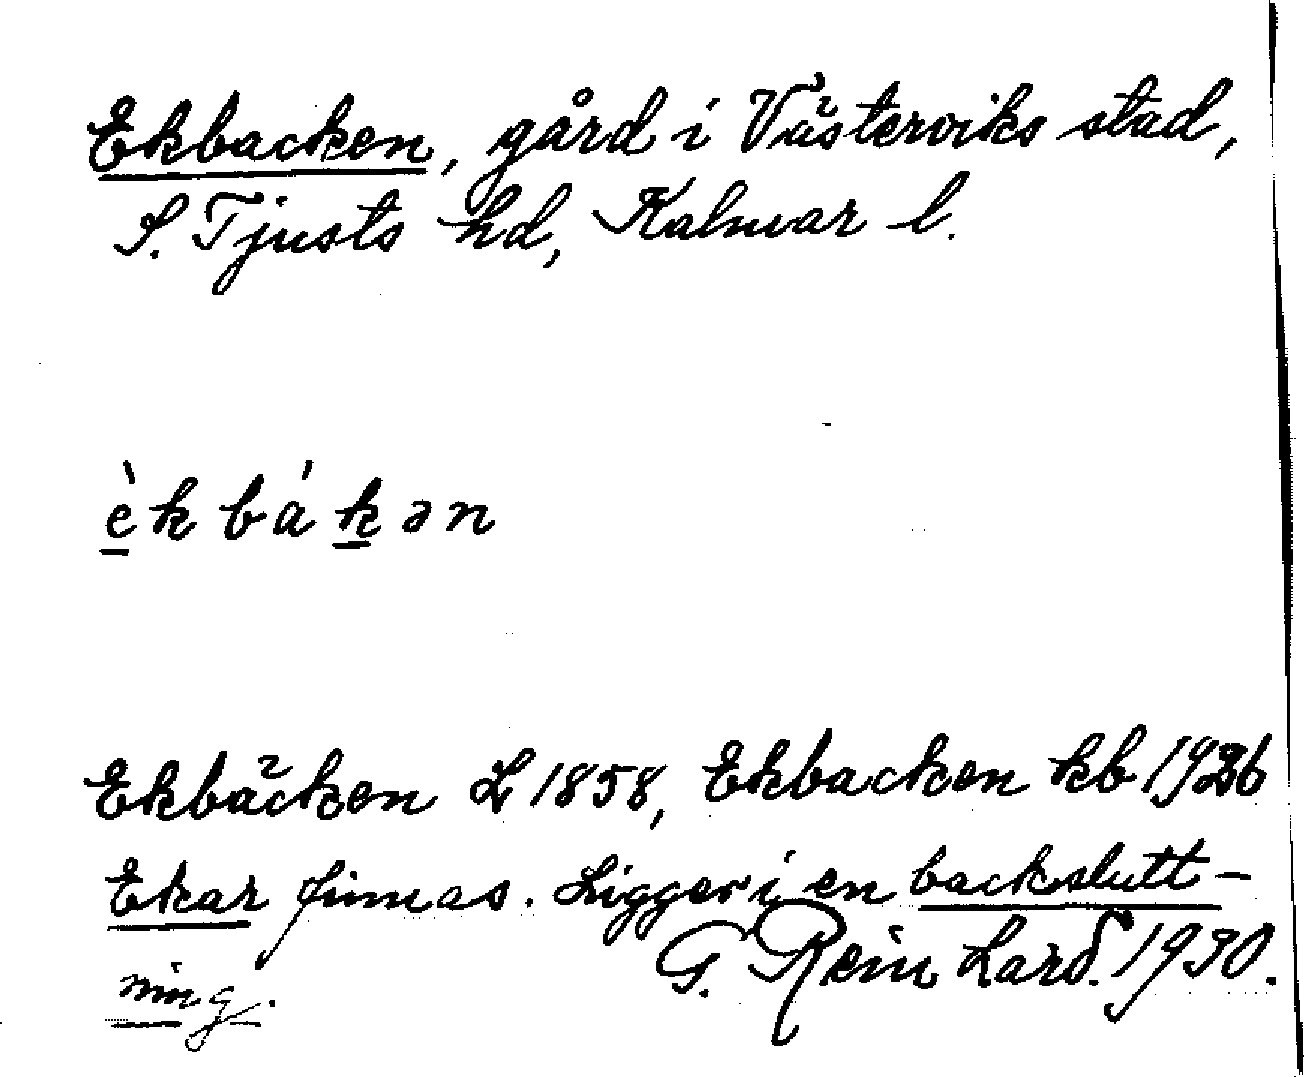 Ekbacken, gård i Västerviks stad,
S. Tjusts hd, Kalmar l.
èkbákən
Ekbäcken L 1858, Ekbacken kb 1926
Ekar finnas. Ligger i en backslutt-
ning.
G. Rein 1930.